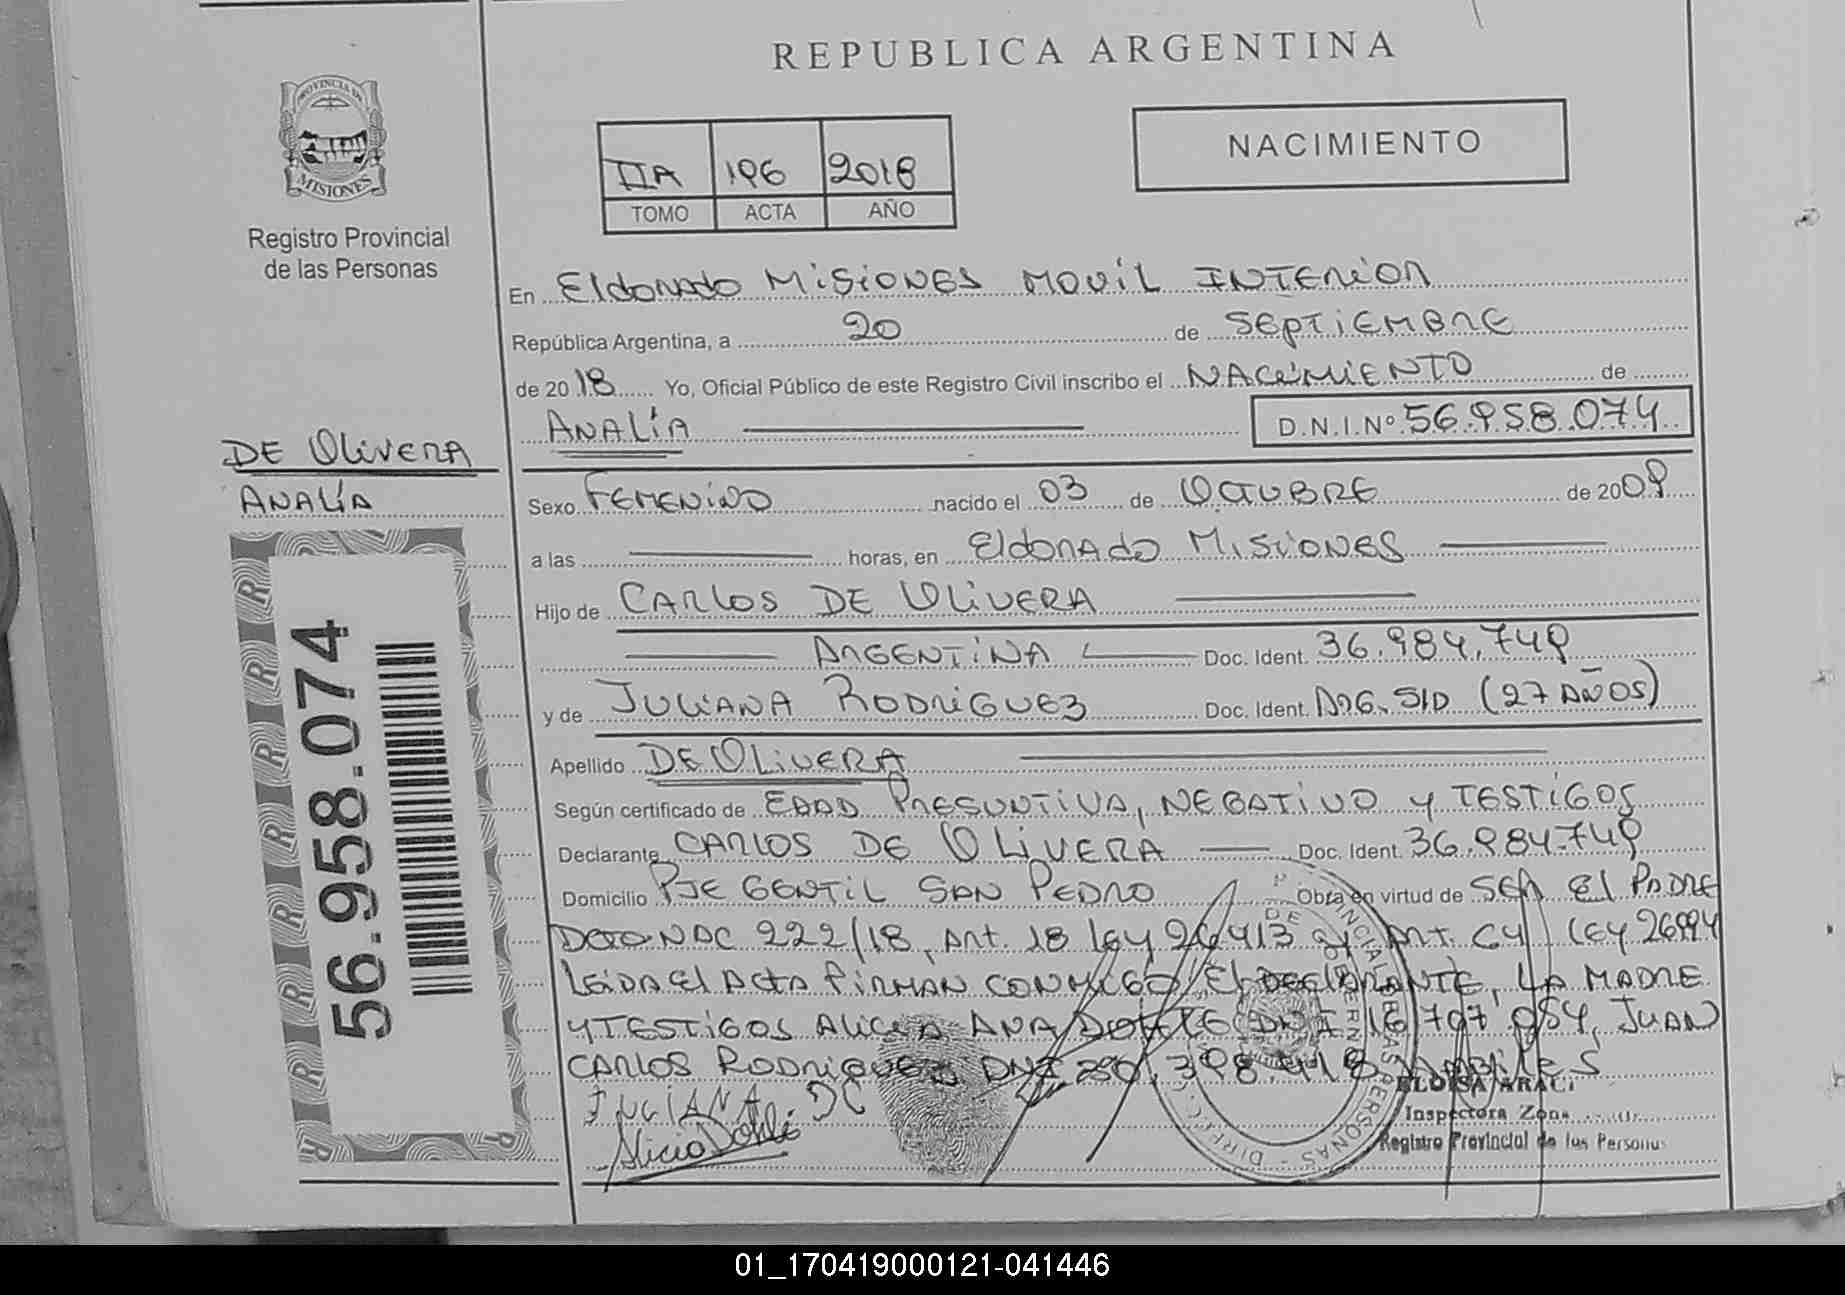 REPUBLICA ARGENTINA
PROVINCIA DE
MISIONES
Registro Provincial
de las Personas
NACIMIENTO
IIA 196 2018
TOMO ACTA AÑO
En Eldorado Misiones Movil Interior
República Argentina, a 20 de Septiembre
de 2018 Yo, Oficial Público de este Registro Civil inscribo el Nacimiento de
Analía D.N.I.Nº 56.958.074
DE Olivera
Analía
Sexo Femenino nacido el 03 de Octubre de 2009
a las horas, en Eldorado Misiones
Hijo de Carlos De Olivera
Argentina Doc. Ident. 36.984.749
y de Juliana Rodriguez Doc. Ident. Arg. S/D (27 Años)
Apellido De Olivera
Según certificado de Edad Presuntiva, Negativo y Testigos
Declarante Carlos De Olivera Doc. Ident. 36.984.749
Domicilio Pje Gentil San Pedro Obra en virtud de Ser El Padre
Dcto NAC 222/18, Art. 18 ley 26413 y Art. 64 Ley 26994
Leida El Acta firman conmigo El Declarante, La Madre
y Testigos Alicia Ana DNI 16.707.054, Juan
Carlos Rodriguez DNI
Juliana
Alicia
ELOISA ARACI
Inspectora Zona
Registro Provincial de las Personas
56.958.074
01_170419000121-041446